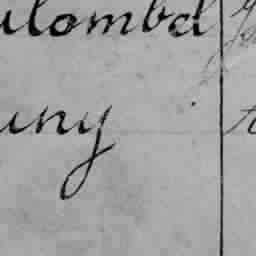 ulombd
uny